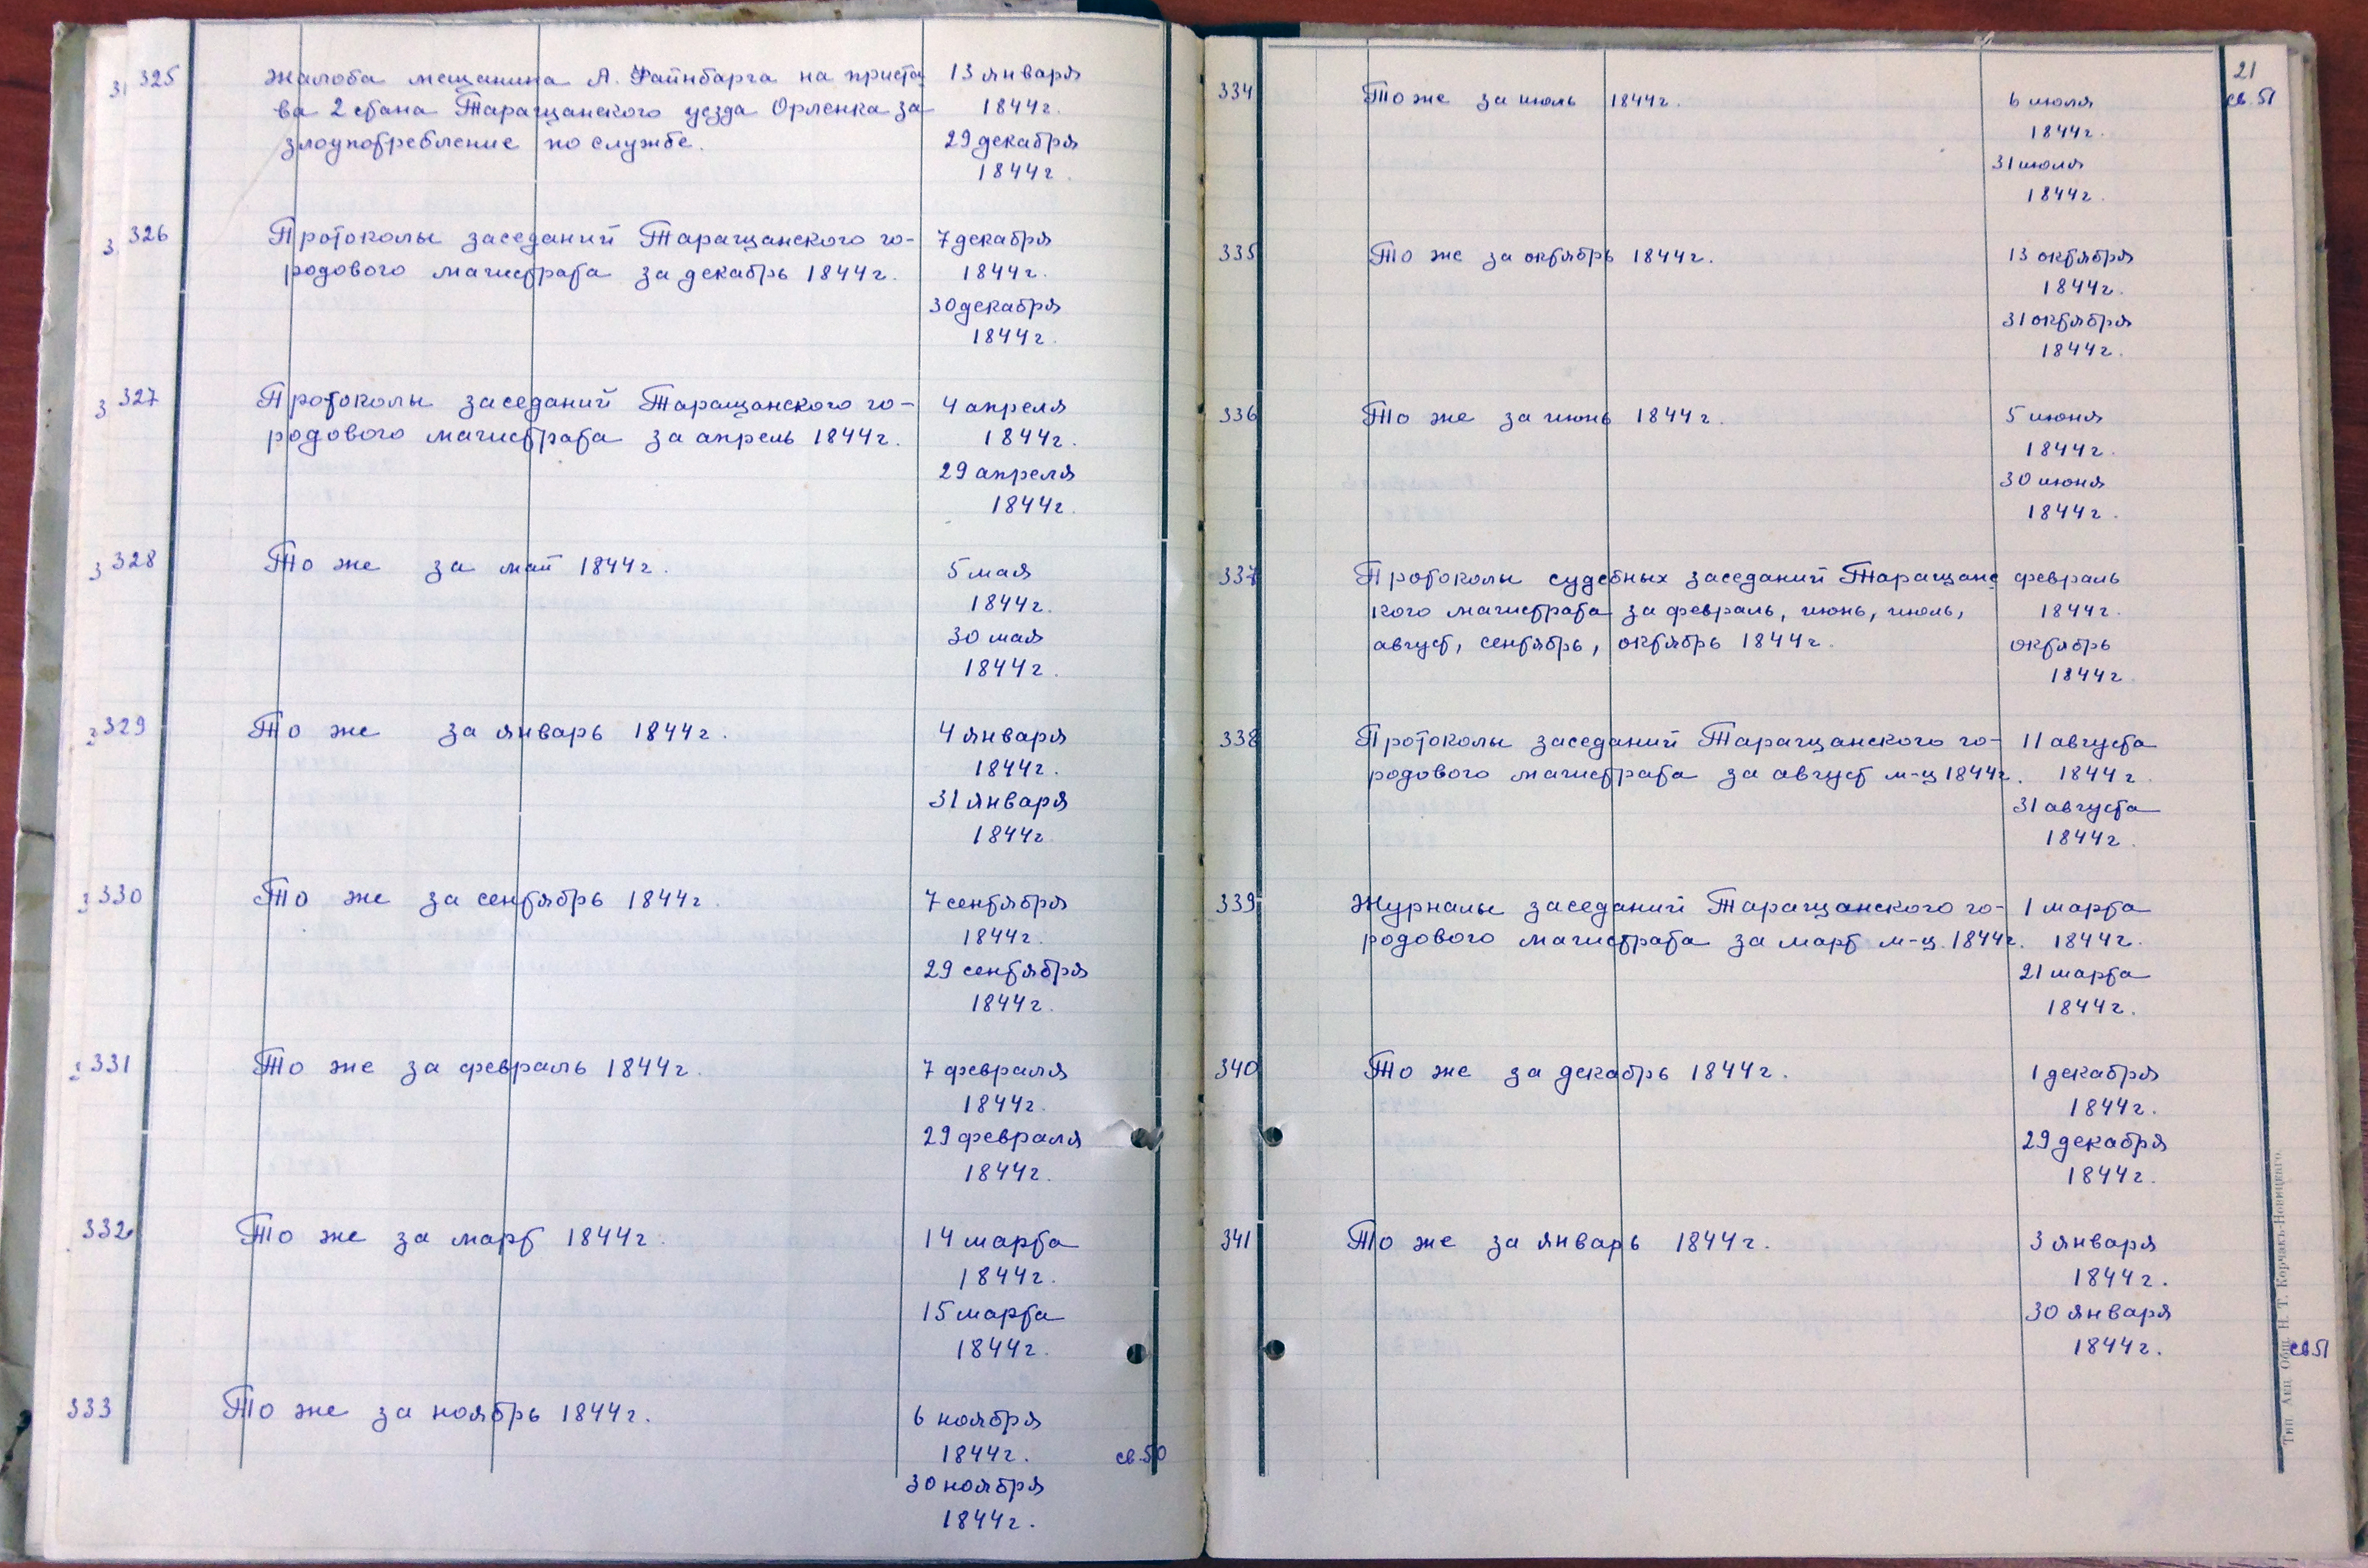 325 Жалоба мещанина А. Файнбарга на приста 13 января
ва 2 стана Таращанского уезда Орленка за 1844г.
злоупотребление по службе. 29 декабря
1844г.
326 Протоколы заседаний Таращанского го- 7 декабря
родового магистрата за декабрь 1844г. 1844г.
30 декабря
1844г.
327 Протоколы заседаний Таращанского го- 4 апреля
родового магистрата за апрель 1844г. 1844г.
29 апреля
1844г.
328 То же за май 1844г. 5 мая
1844г.
30 мая
1844г.
329 То же за январь 1844г. 4 января
1844г.
31 января
1844г.
330 То же за сентябрь 1844г. 7 сентября
1844г.
29 сентября
1844г.
331 То же за февраль 1844г. 7 февраля
1844г.
29 февраля
1844г.
332 То же за март 1844г. 14 марта
1844г.
15 марта
1844г.
333 То же за ноябрь 1844г. 6 ноября
1844г. св.50
30 ноября
1844г.
21
334 То же за июль 1844г. 6 июля св.51
1844г.
31 июля
1844г.
335 То же за октябрь 1844г. 13 октября
1844г.
31 октября
1844г.
336 То же за июнь 1844г. 5 июня
1844г.
30 июня
1844г.
337 Протоколы судебных заседаний Таращанс февраль
кого магистрата за февраль, июнь, июль, 1844г.
август, сентябрь, октябрь 1844г. октябрь
1844г.
338 Протоколы заседаний Таращанского го- 11 августа
родового магистрата за август м-ц 1844г. 1844г.
31 августа
1844г.
339 Журналы заседаний Таращанского го- 1 марта
родового магистрата за март м-ц. 1844г. 1844г.
21 марта
1844г.
340 То же за декабрь 1844г. 1 декабря
1844г.
29 декабря
1844г.
341 То же за январь 1844г. 3 января
1844г.
30 января
1844г. св51
Тип. Акц. Общ. Н. Т. Корчакъ-Новицкаго.